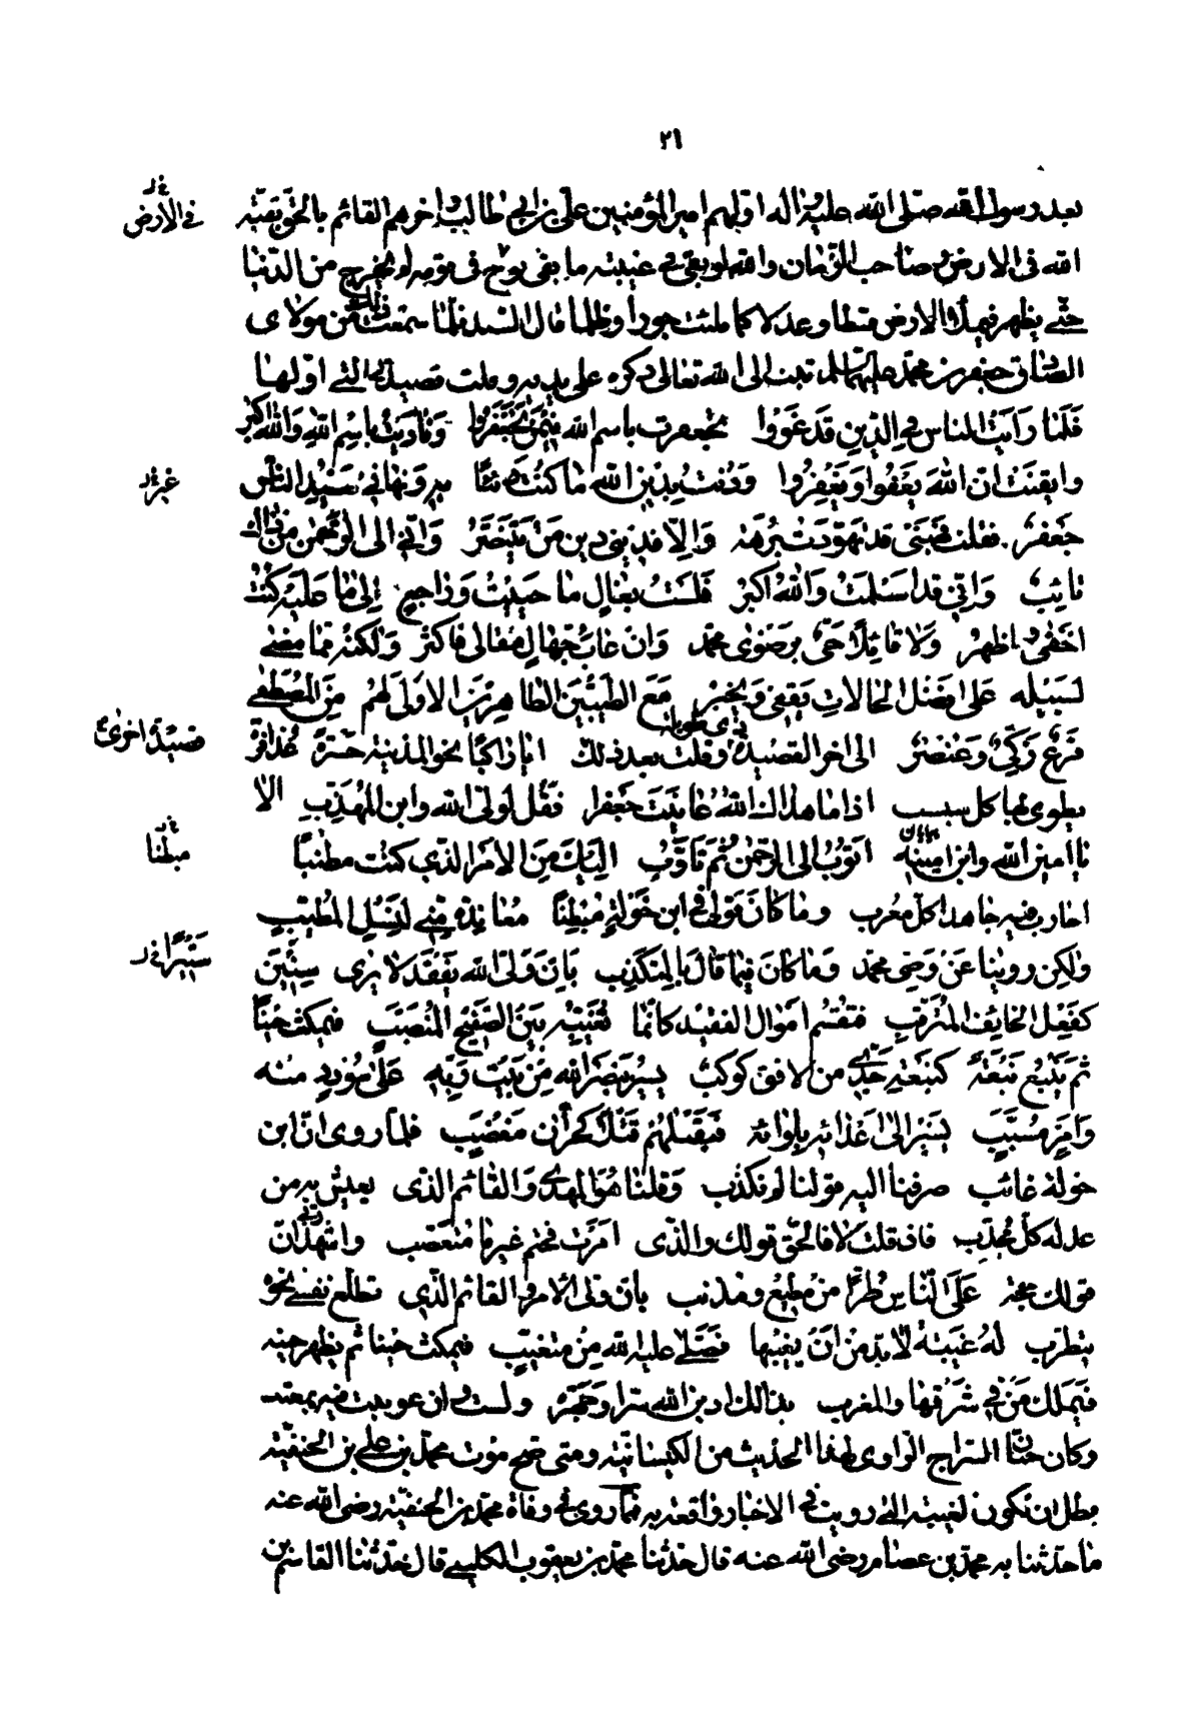 ٢١
بعد رسول الله صلى الله عليه واله اولهم امير المؤمنين على بن ابى طالب واخرهم القائم بالحق بقية
فى الارض
الله فى الارض وصاحب الزمان والله لو بقى فى غيبته ما بقى نوح فى قومه لم يخرج من الدنيا
حتى يظهر فيملأ الارض قسطا وعدلا كما ملئت جورا وظلما قال السيد فلما سمعت ذلك من مولاى
الصادق جعفر بن محمد عليهما السلم تبت الى الله تعالى ذكره على يديه وقلت قصيدتى التى اولها
فَلَمّا رَأَيْتُ الناس فى الدّينِ قَد غَوَوْا تجعفرت باسم الله فيمَن تَجَعْفَرُوا وَنادَيْتُ باسِمِ اللهِ وَاللهُ اكبر
وايقنت انّ اللهَ يَعْفُوا وَيَغْفِرُوا وَدُنْتُ بِدينِ اللهِ ما كُنْتُ دَيِّنًا بهِ وَنَهانى سَيّدُ النّاس
غير
جَعْفَرٌ فقلت فَهَبْنى قد تَهَوَّدَتْ بُرْهَةً وَاِلّا فدينى دين مَن يَتَنَصَّرُ وَانّى الى الرَّحْمٰن من ذاك
تائِبٌ وَانّى قد اسلمت وَاللهُ اكبر فلستُ بِغالٍ ما حَيِيتُ وَراجِعٍ الى ما عَليه كنتُ
اخفى واظهر وَلا قائِلًا حَىٌّ بِرَضْوٰى محمّد وَان عابَ جُهّالٌ مقالى فاكثر وَلكنّهُ ممّا مضى
لسبيله عَلى افضل الحالات يقفى ويخبر مَعَ الطّيّبينَ الطّاهِرينَ الاولى لهم مِنَ المصطفى
فرع زكىّ وعنصر الى اخر القصيدة وهى طويلة وقلت بعد ذلك ايا راكبًا نحو المدينة جسرةً عُذافرة
قصيدة اخرى
يطوى بها كل سبسب اذا ما هداك اللهُ عايَنْتَ جَعفرا فقُل لولىّ الله وابن المُهَذّبِ الا
يا امين الله وابن امينه اتوب الى الرّحمٰن ثمّ تأوّبى اليك مِنَ الامرِ الذى كنت مطنبًا
مبطنا
احارب فيه جاهدا كل معرب وما كان قولى فى ابن خولة مُبْطِنًا معاندة منى لنسل المطيّب
ولكن روينا عن وصىّ محمّد وما كان فيما قال بالمتكذّب بانّ ولىّ الله يفقد لا يرى سنينَ
ستيرا
كفعل الخايف المترقب فتقسم اموال الفقيد كانّما تغيّبه بين الصفيح المنصّب فيمكث حينًا
ثم ينبع نبعة كنبعة جدى من الافق كوكب يسير بنصر الله من بيت ربّه على سُودد منه
وامر مسبّب يسير الى اعدائه بلوائه فيقتلهم قتلا كحرّان مغضب فلما روى انّ ابن
خولة غائب صرفنا اليه قولنا لم نكذّب وقلنا هو المهدى والقائم الذى يعيش به من
عدله كلّ مجدب فان قلت لا فالحقّ قولك والذى امرت فحتم غير ما متعصّب واشهد ربى انّ
قولك حجة على النّاس طرًّا من مطيع ومذنب بانّ ولىّ الامر والقائم الذى تطلّع نفسى نحوه
بتطرّب له غيبة لا بدّ من ان يغيبها فصلّى عليه الله من متغيّب فيمكث حينا ثم يظهر حينه
فيملك من فى شرقها والمغرب بذالك ادين الله سرّا وجهرة ولست وان عوتبت فيه بمعتب
وكان حيّان السّراج الراوى لهذا الحديث من الكيسانيّة ومتى صحّ موت محمّد بن على بن الحنفيّة
بطل ان تكون الغيبة التى رويت فى الاخبار واقعة به فممّا روى فى وفاة محمّد بن الحنفيّة رضى الله عنه
ما حدّثنا به محمّد بن عصام رضى الله عنه قال حدّثنا محمّد بن يعقوب الكلينى قال حدّثنا القاسم بن